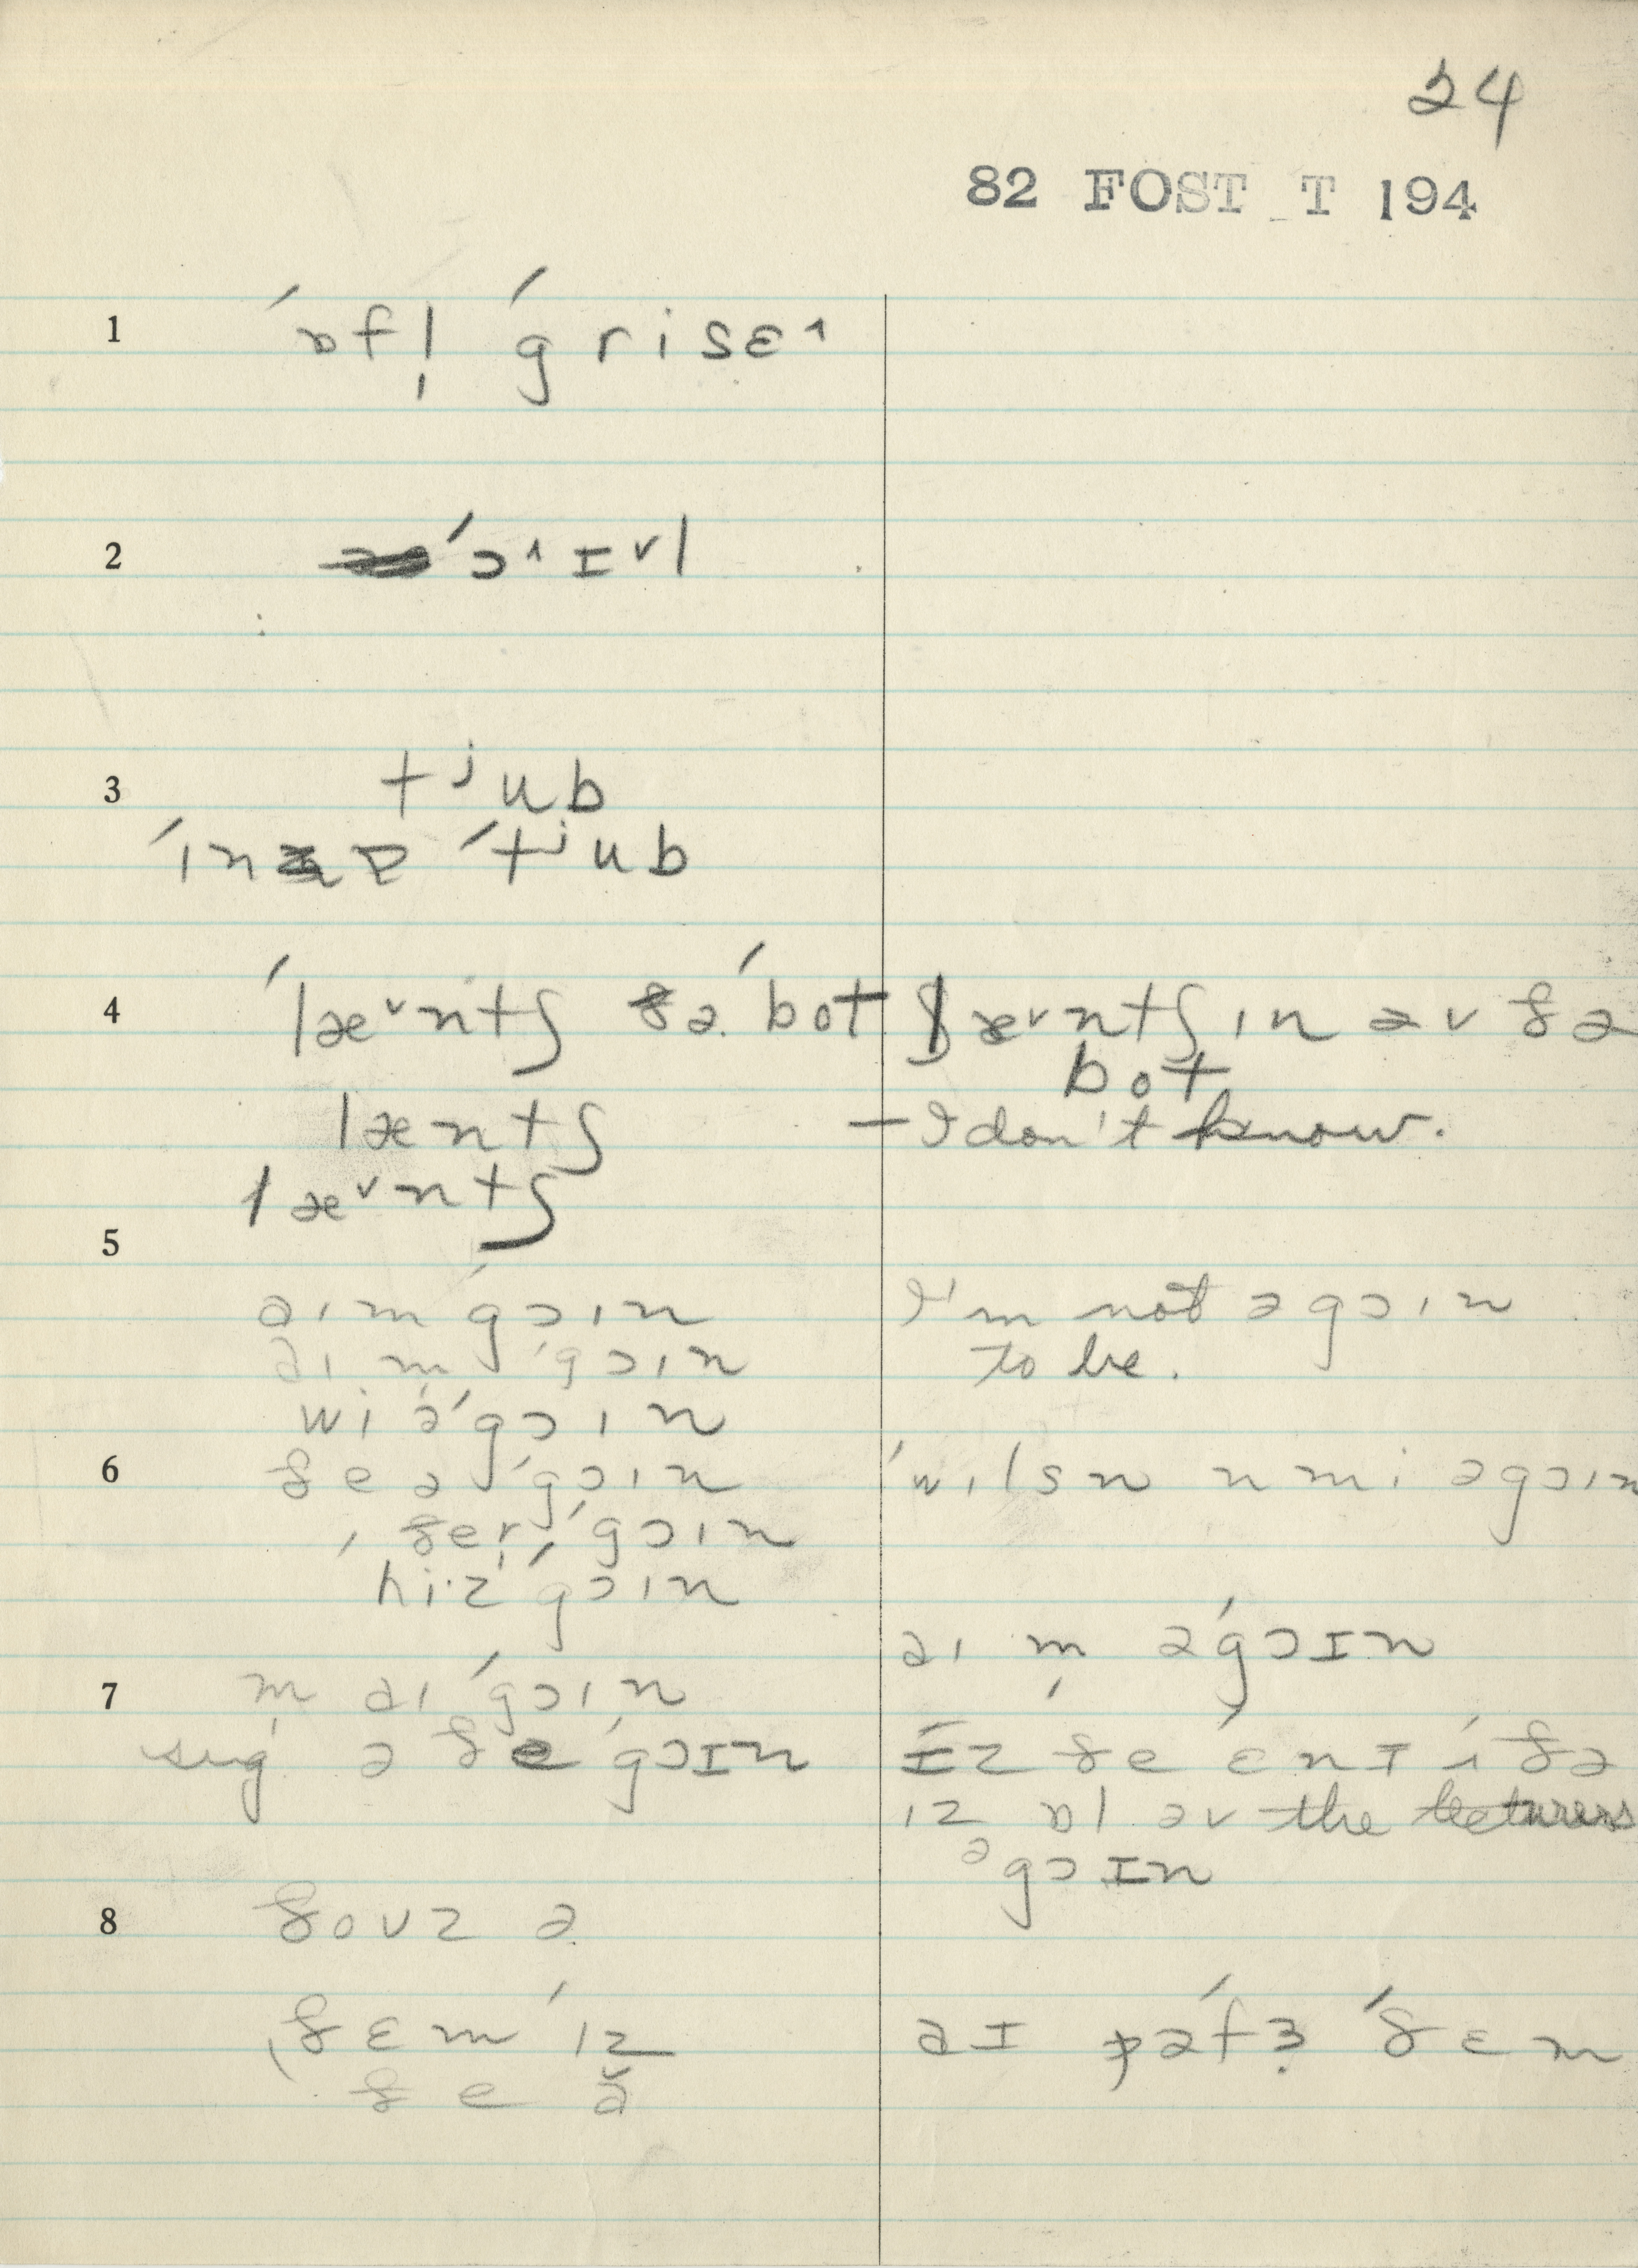 24
82 FOST T 194
1 ´ɒfl̩ ´grisɛ˄
2 ´ɔ˄ɪ˅l
3 tʲub
´ɪn ɐ ´tʲub
4 ´læ˅ntʃ ðə ´bot læ˅ntʃɪn əv ðə
bot
læntʃ — I don't know.
læ˅ntʃ
5
aɪm ´gɔɪn I'm not əgɔɪn
aɪ m̩ ´gɔɪn to be.
wi ə´gɔɪn
6 ðe ə ´gɔɪn ´wɪlsn n mi əgɔɪn
ðer ´gɔɪn
hi·z ´gɔɪn
aɪ m̩ ə´gɔɪn
7 m̩ aɪ ´gɔɪn
sug ə ðe ´gɔɪn ´ɪz ðe ´ɛnɪ ´ʌðə
ɪz ɒl əv the lecturers
əgɔɪn
8 ðovz ə
ðɛm ´ɪz aɪ ´ðɛm
ðe ə̆